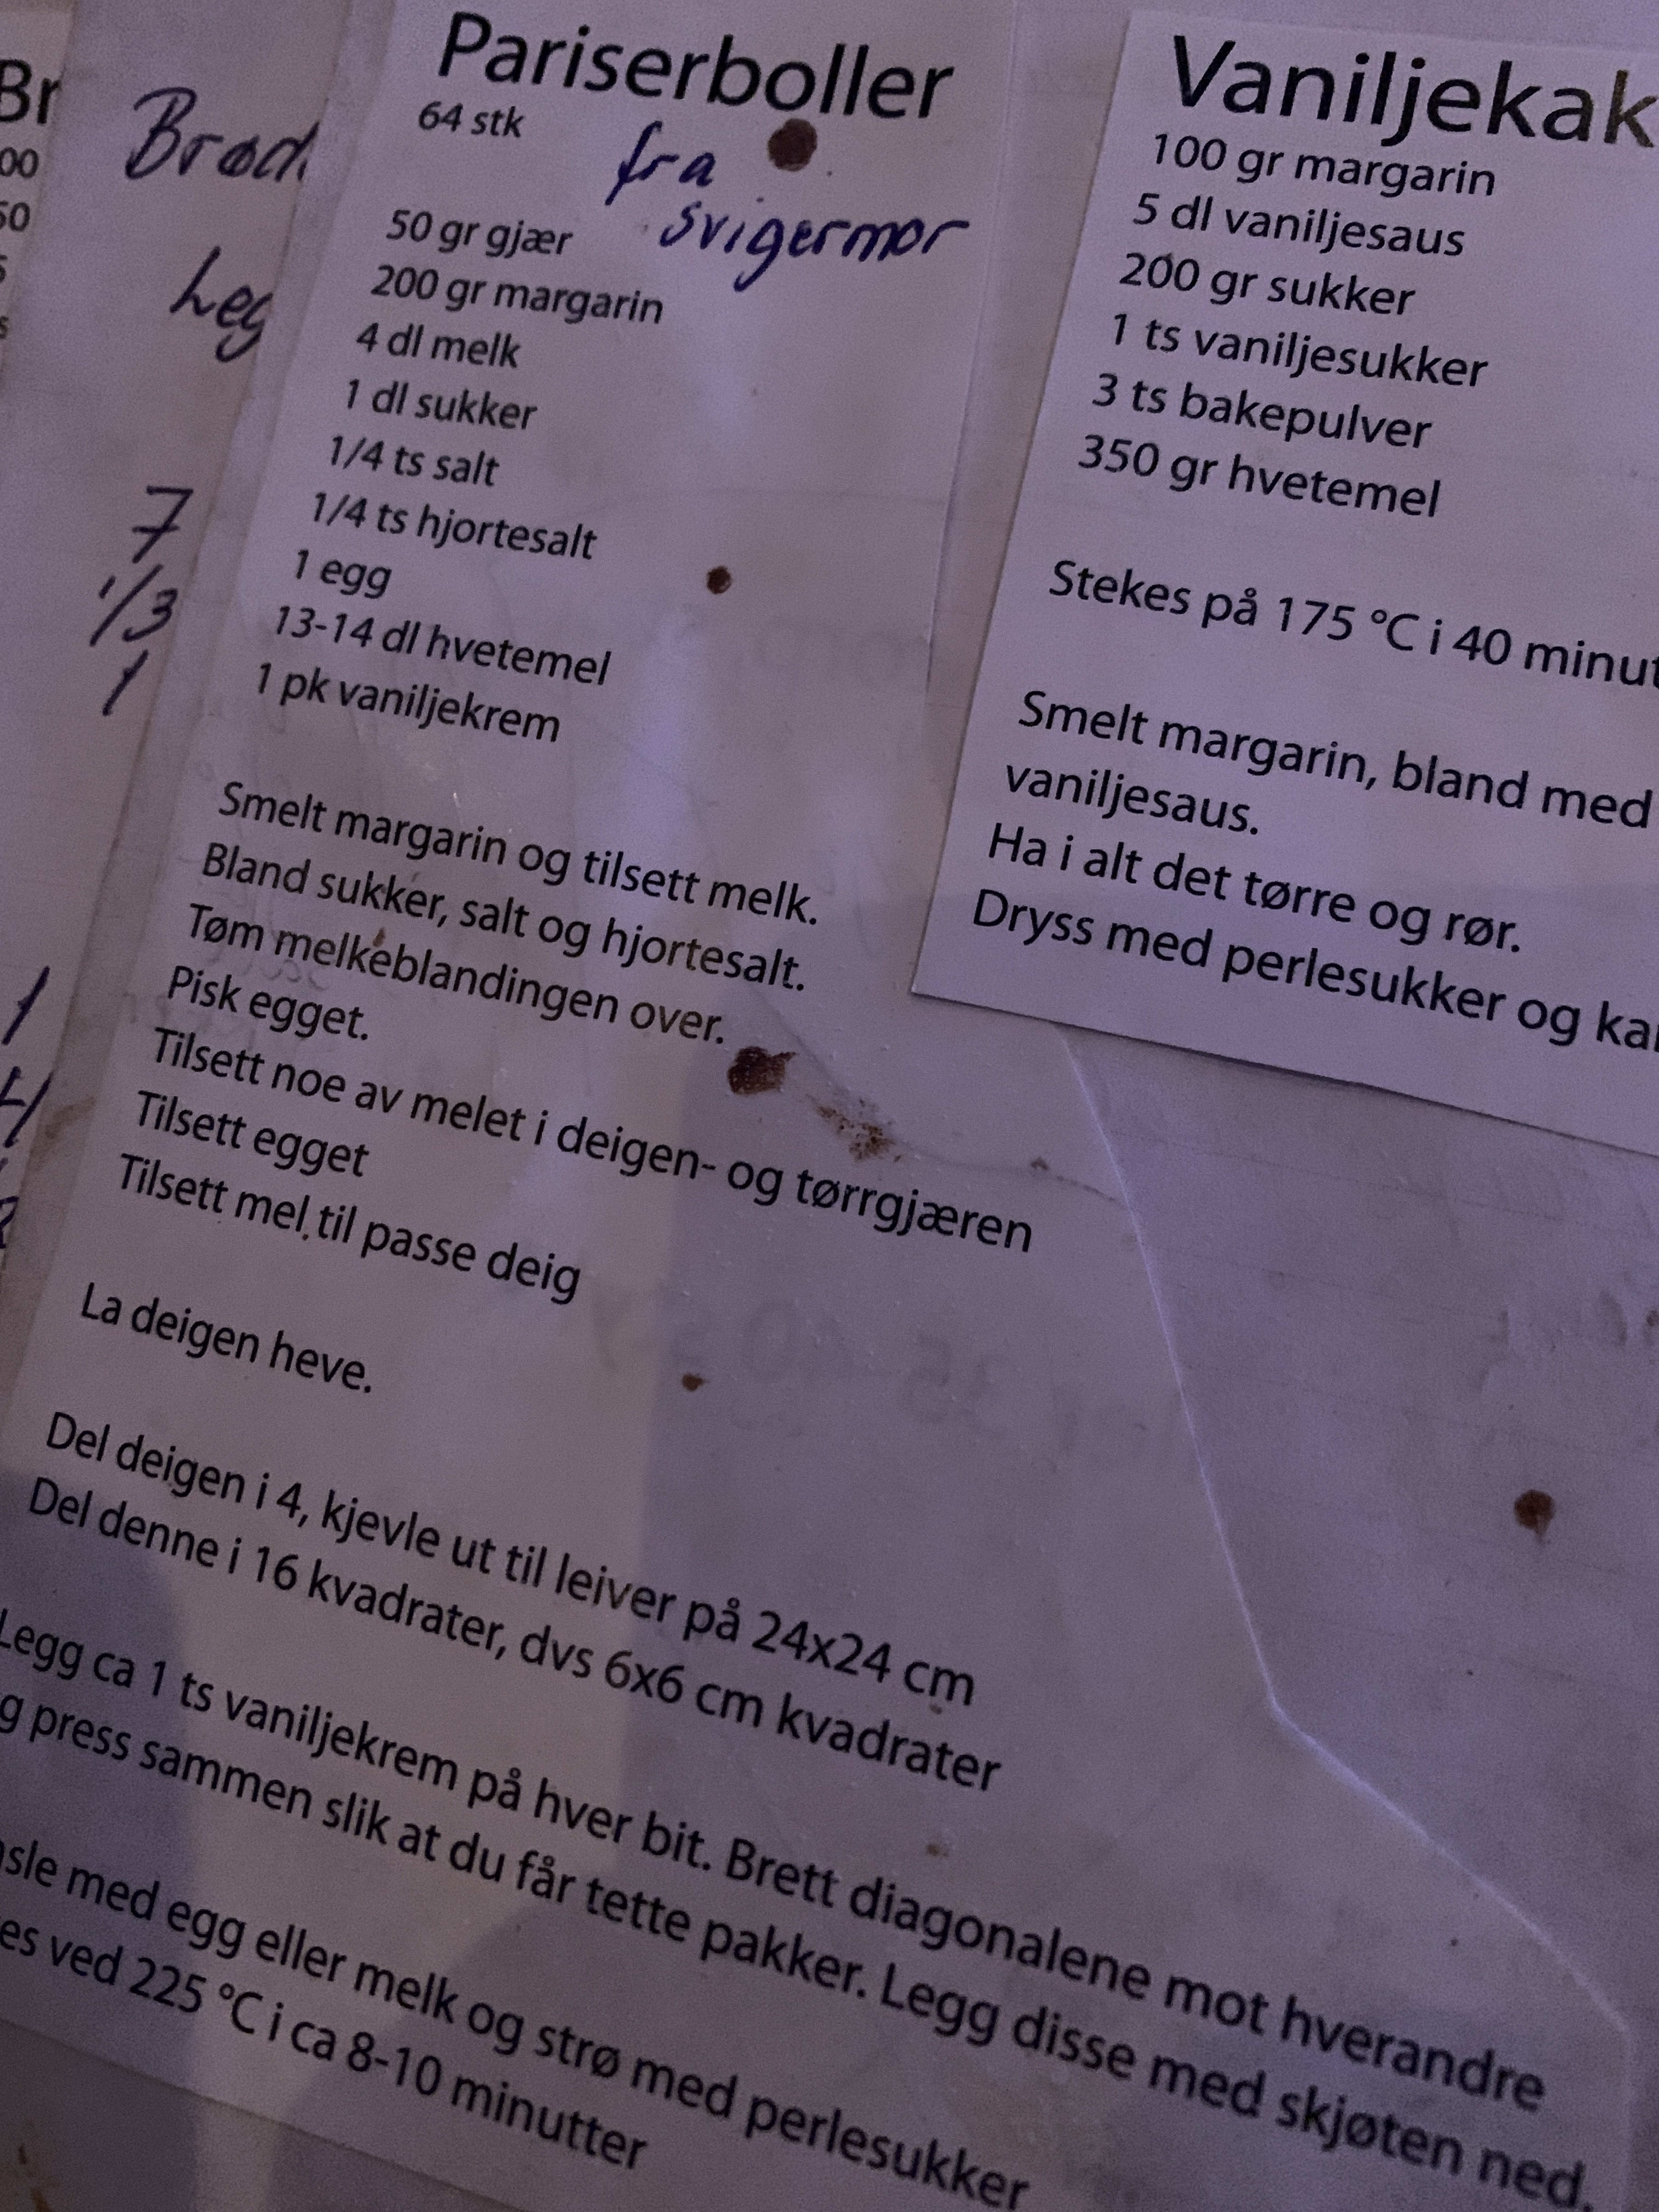 Br
00
50
Brød
Leg
7
1/3
1
1
Pariserboller
64 stk
fra
svigermor
50 gr gjær
200 gr margarin
4 dl melk
1 dl sukker
1/4 ts salt
1/4 ts hjortesalt
1 egg
13-14 dl hvetemel
1 pk vaniljekrem
Smelt margarin og tilsett melk.
Bland sukker, salt og hjortesalt.
Tøm melkeblandingen over.
Pisk egget.
Tilsett noe av melet i deigen- og tørrgjæren
Tilsett egget
Tilsett mel til passe deig
La deigen heve.
Del deigen i 4, kjevle ut til leiver på 24x24 cm
Del denne i 16 kvadrater, dvs 6x6 cm kvadrater
Legg ca 1 ts vaniljekrem på hver bit. Brett diagonalene mot hverandre
g press sammen slik at du får tette pakker. Legg disse med skjøten ned.
sle med egg eller melk og strø med perlesukker
es ved 225 °C i ca 8-10 minutter
Vaniljekak
100 gr margarin
5 dl vaniljesaus
200 gr sukker
1 ts vaniljesukker
3 ts bakepulver
350 gr hvetemel
Stekes på 175 °C i 40 minut
Smelt margarin, bland med
vaniljesaus.
Ha i alt det tørre og rør.
Dryss med perlesukker og ka